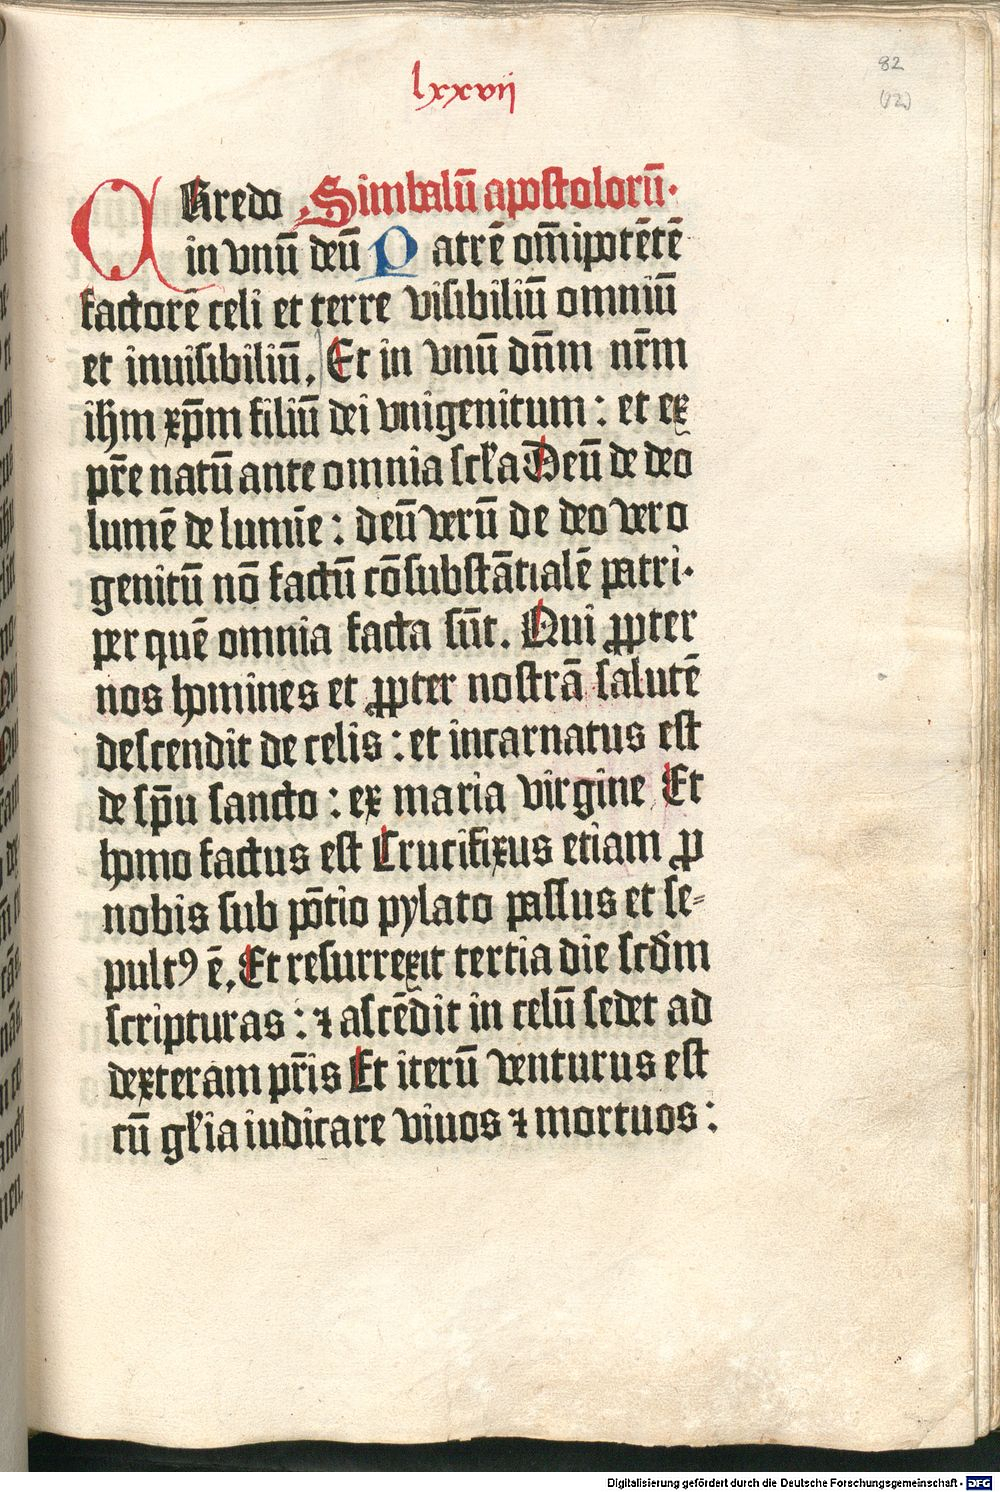 lxxvii
82
(12)
Credo Simbalū apostolorū.
in vnū deū Patrē om̄ipotētē
factorē celi et terre visibiliū omniū
et inuisibiliū. Et in vnū dn̄m nr̄m
ihm xp̄m filiū dei vnigenitum : et ex
pr̄e natū ante omnia scl̄a Deū de deo
lumē de lumīe : deū verū de deo vero
genitū nō factū cōsubstātialē patri.
per quē omnia facta sūt. Qui ꝓpter
nos homines et ꝓpter nostrā salutē
descendit de celis : et incarnatus est
de sp̄u sancto : ex maria virgine Et
homo factus est Crucifixus etiam ꝓ
nobis sub pōtio pylato passus et se-
pultꝰ ē. Et resurrexit tertia die scd̄m
scripturas : ⁊ ascēdit in celū sedet ad
dexteram pr̄is Et iterū venturus est
cū gl̄ia iudicare viuos ⁊ mortuos :
Digitalisierung gefördert durch die Deutsche Forschungsgemeinschaft - DFG